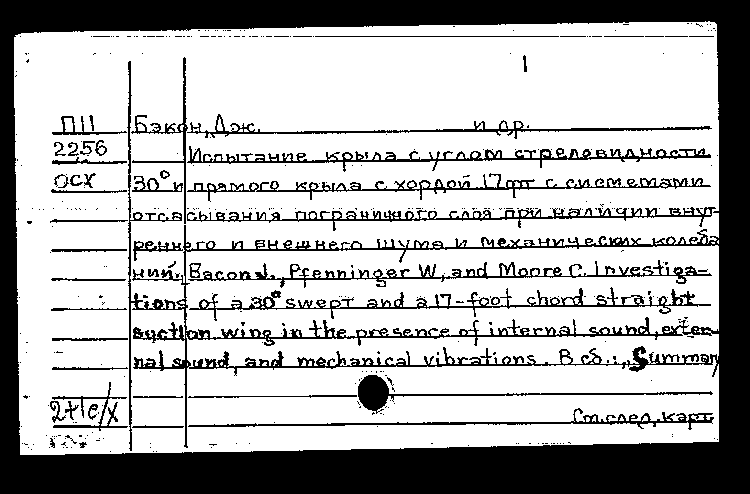 1
П11 Бэкон, Дж. и др.
2256 Испытание крыла с углом стреловидности
ОСХ 30° и прямого крыла с хордой 17фт с системами
отсасывания пограничного слоя при наличии внут-
реннего и внешнего шума и механических колеба
ний. Bacon J., Pfenninger W, and Moore C. Investiga-
tions of a 30° swept and a 17-foot chord straight
suction wing in the presence of internal sound, exter-
nal sound, and mechanical vibrations. В сб.: „Summary
2+1е/х
См. след. карт